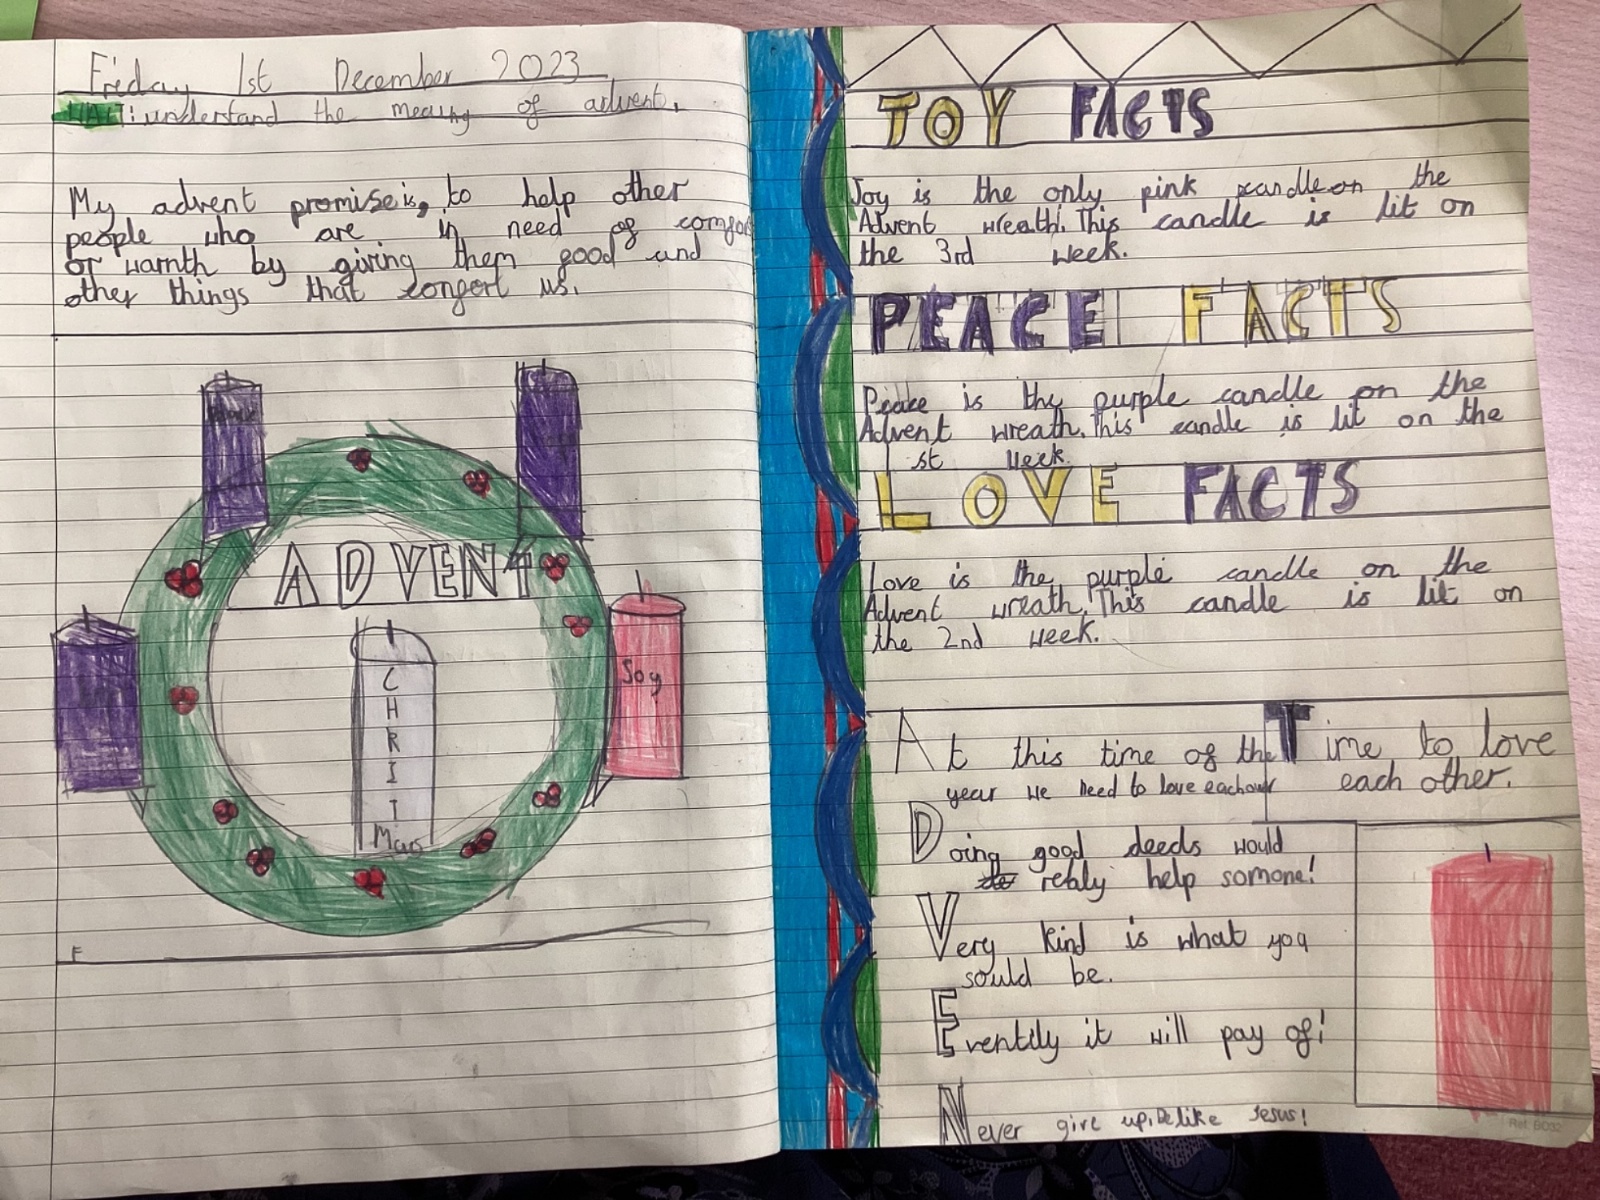 Frieday 1st December 2023
WALT: understand the meaning of advent.
My advent promise is, to help other
people who are in need of comfort
or warmth by giving them good and
other things that confort us.
Peace
ADVENT
Joy
CHRIST
Mas
TOY FACTS
Joy is the only pink candle on the
Advent wreath. This candle is lit on
the 3rd week.
PEACE FACTS
Peace is the purple candle on the
Advent wreath. This candle is lit on the
1st week.
LOVE FACTS
Love is the purple candle on the
Advent wreath. This candle is lit on
the 2nd week.
At this time of the
year we need to love eachother
Time to love
each other.
Doing good deeds would
realy help somone!
Very kind is what you
sould be.
Eventily it will pay of!
Never give up, be like Jesus!
Ref: BO32